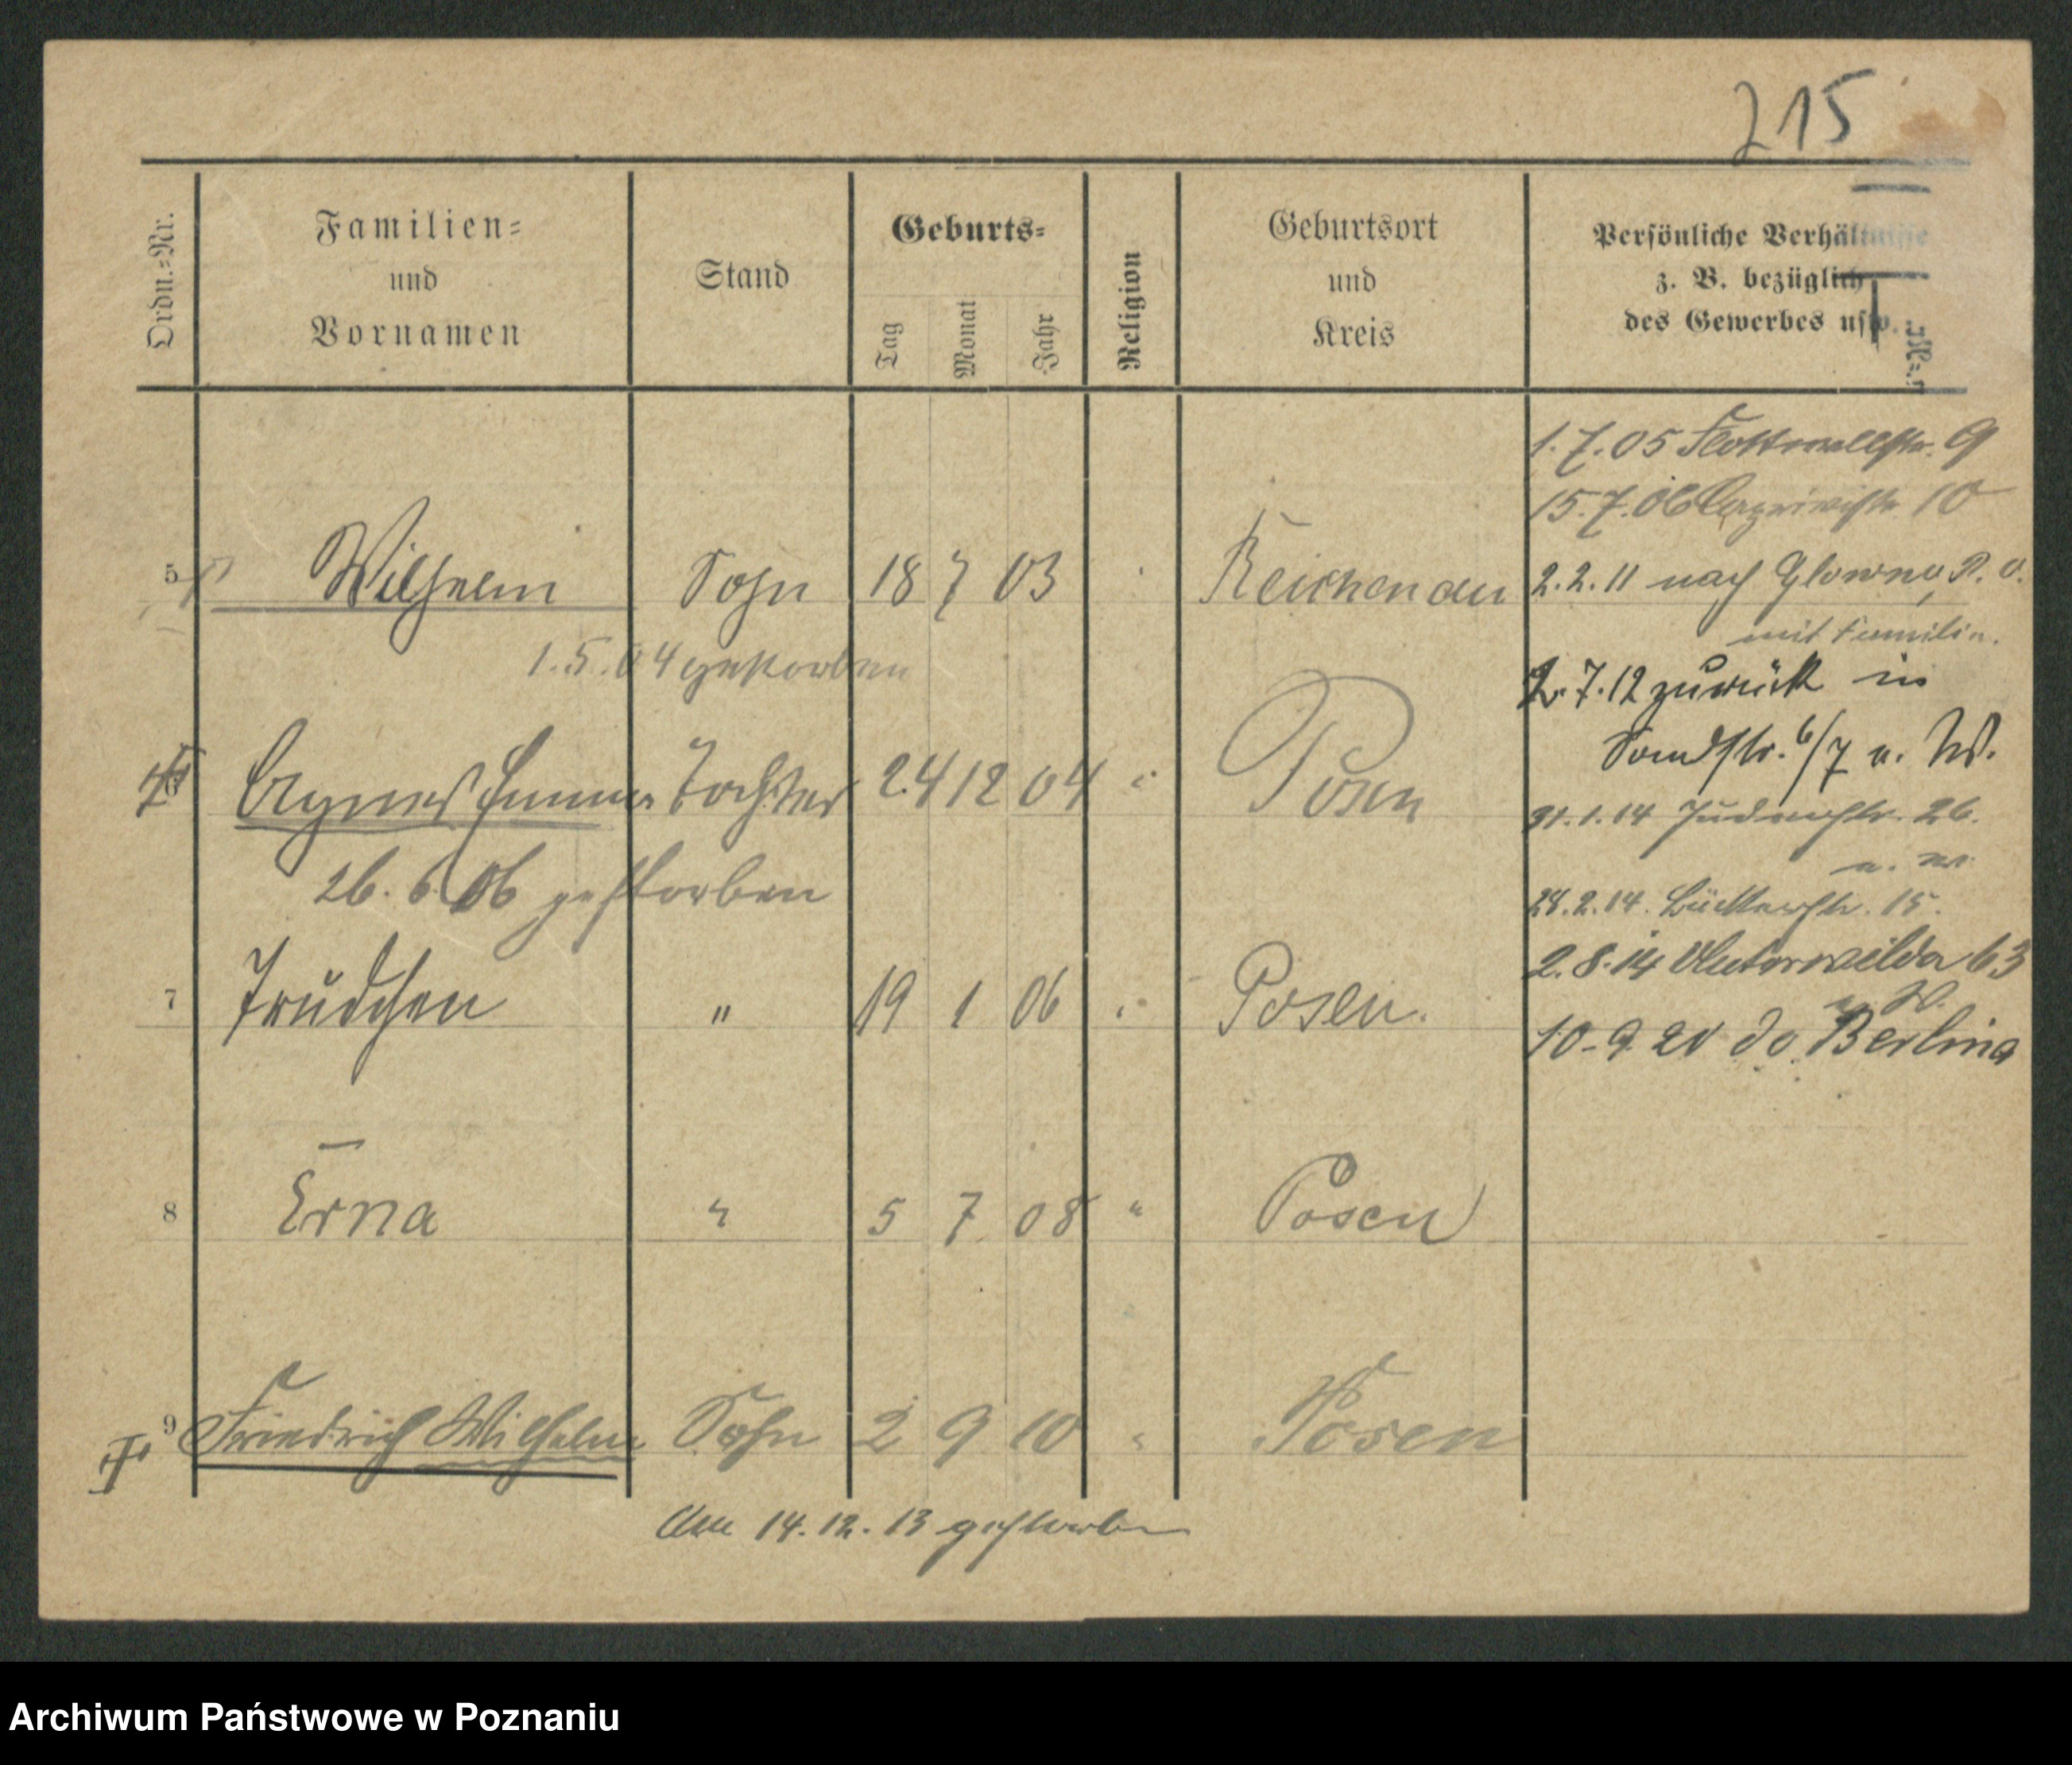 215
Ordn.=Nr.
Familien=
und
Vornamen
Stand
Geburts=
Tag
Monat
Jahr
Religion
Geburtsort
und
Kreis
Persönliche Verhältnisse
z. B. bezüglich
des Gewerbes usw.
1.7.05 Flottwellstr. 9
15.7.06 10
5 Wilhelm Sohn 18 7 03 Reichenau
1.5.04 gestorben
2.2.11 nach Glowno, P. O.
mit Familie.
2.7.12 zurück in
Sandstr. 6/7 u. W.
6 Agnes Emma Tochter 24 12 04 " Posen
26.6.06 gestorben
31.1.14 Judenstr. 26.
u. W.
28.2.14. Bückerstr. 15.
2.8.14 Unterwilda 63
u. W.
10-9 20 do. Berlin
7 Trudchen " 19 1 06 " Posen.
8 Erna " 5 7 08 " Posen
9 Friedrich Wilhelm Sohn 2 9 10 " Posen
Am 14.12.13 gestorben
Archiwum Państwowe w Poznaniu